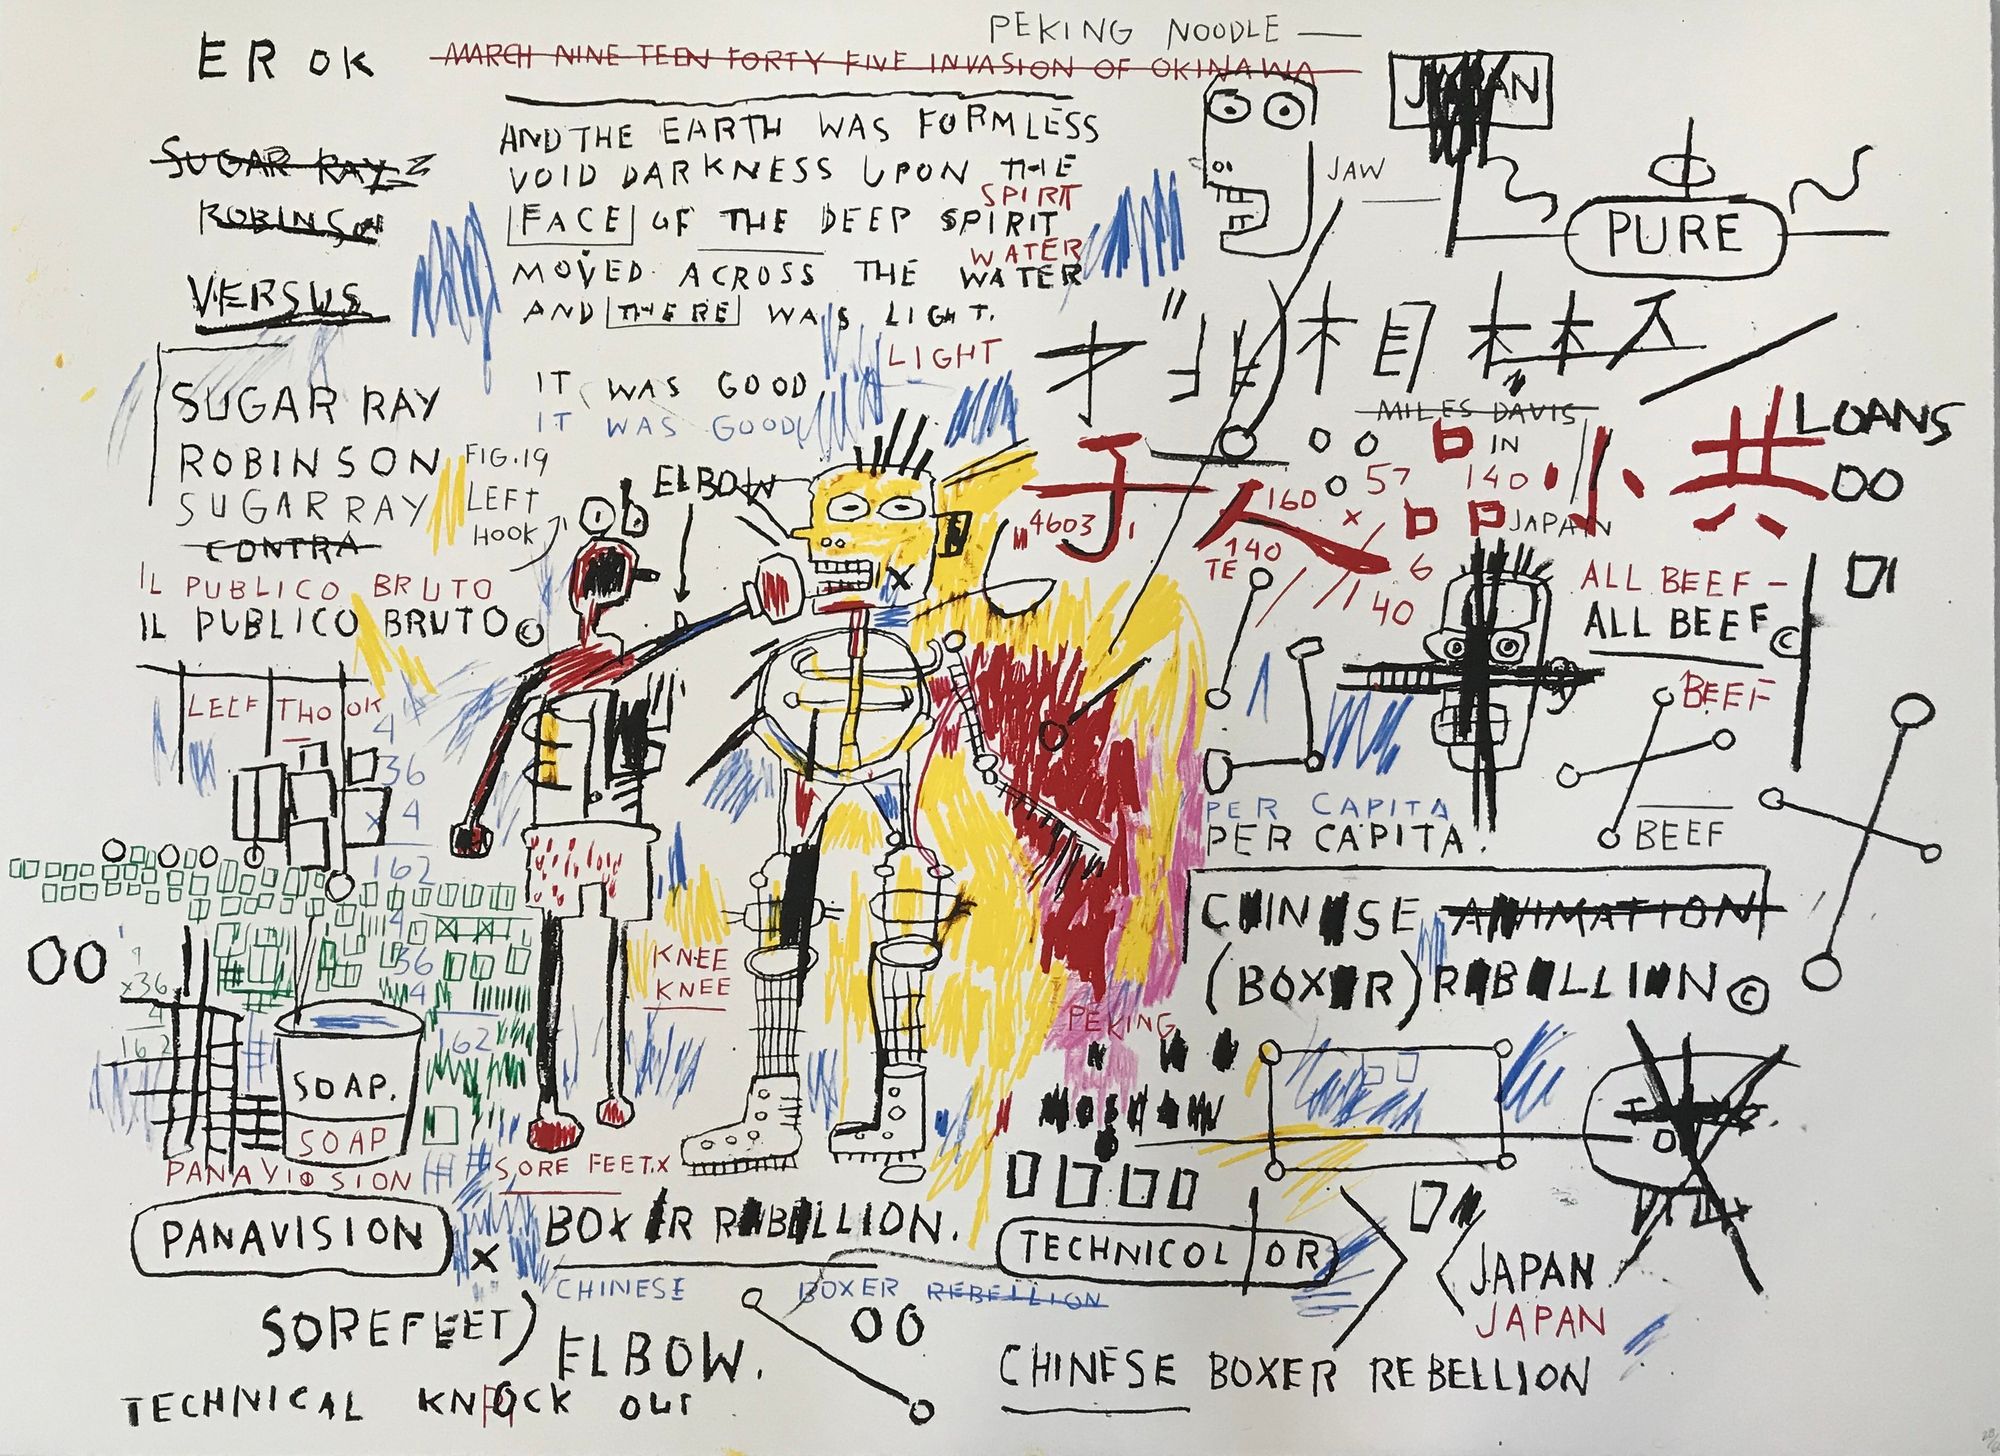 PEKING NOODLE —
ER OK
MARCH NINE TEEN FORTY FIVE INVASION OF OKINAWA
JAPAN
SUGAR RAY
ROBINSON
VERSUS
AND THE EARTH WAS FORMLESS
VOID DARKNESS UPON THE
SPIRT
FACE OF THE DEEP SPIRIT
WATER
MOVED ACROSS THE WATER
AND THERE WAS LIGHT.
LIGHT
IT WAS GOOD
IT WAS GOOD
JAW
PURE
SUGAR RAY
ROBINSON
SUGAR RAY
CONTRA
IL PUBLICO BRUTO
IL PUBLICO BRUTO©
FIG.19
LEFT
HOOK
ELBOW
MILES DAVIS
IN
LOANS
OO
57
140
160
x
4603
JAPAN
140
TE
6
140
ALL BEEF –
ALL BEEF©
BEEF
BEEF
LEEF THO OK
4
36
x 4
162
4
36
4
162
9
x36
4
162
OO
KNEE
KNEE
PER CAPITA
PER CAPITA.
CHINESE ANIMATION
(BOXER) REBELLION©
PEKING
SOAP.
SOAP
PANAVIOSION
SORE FEET.X
PANAVISION
X
BOXER REBELLION.
TECHNICOLOR
CHINESE BOXER REBELLION
JAPAN
JAPAN
SOREFEET)
ELBOW.
OO
CHINESE BOXER REBELLION
TECHNICAL KNOCK OUT